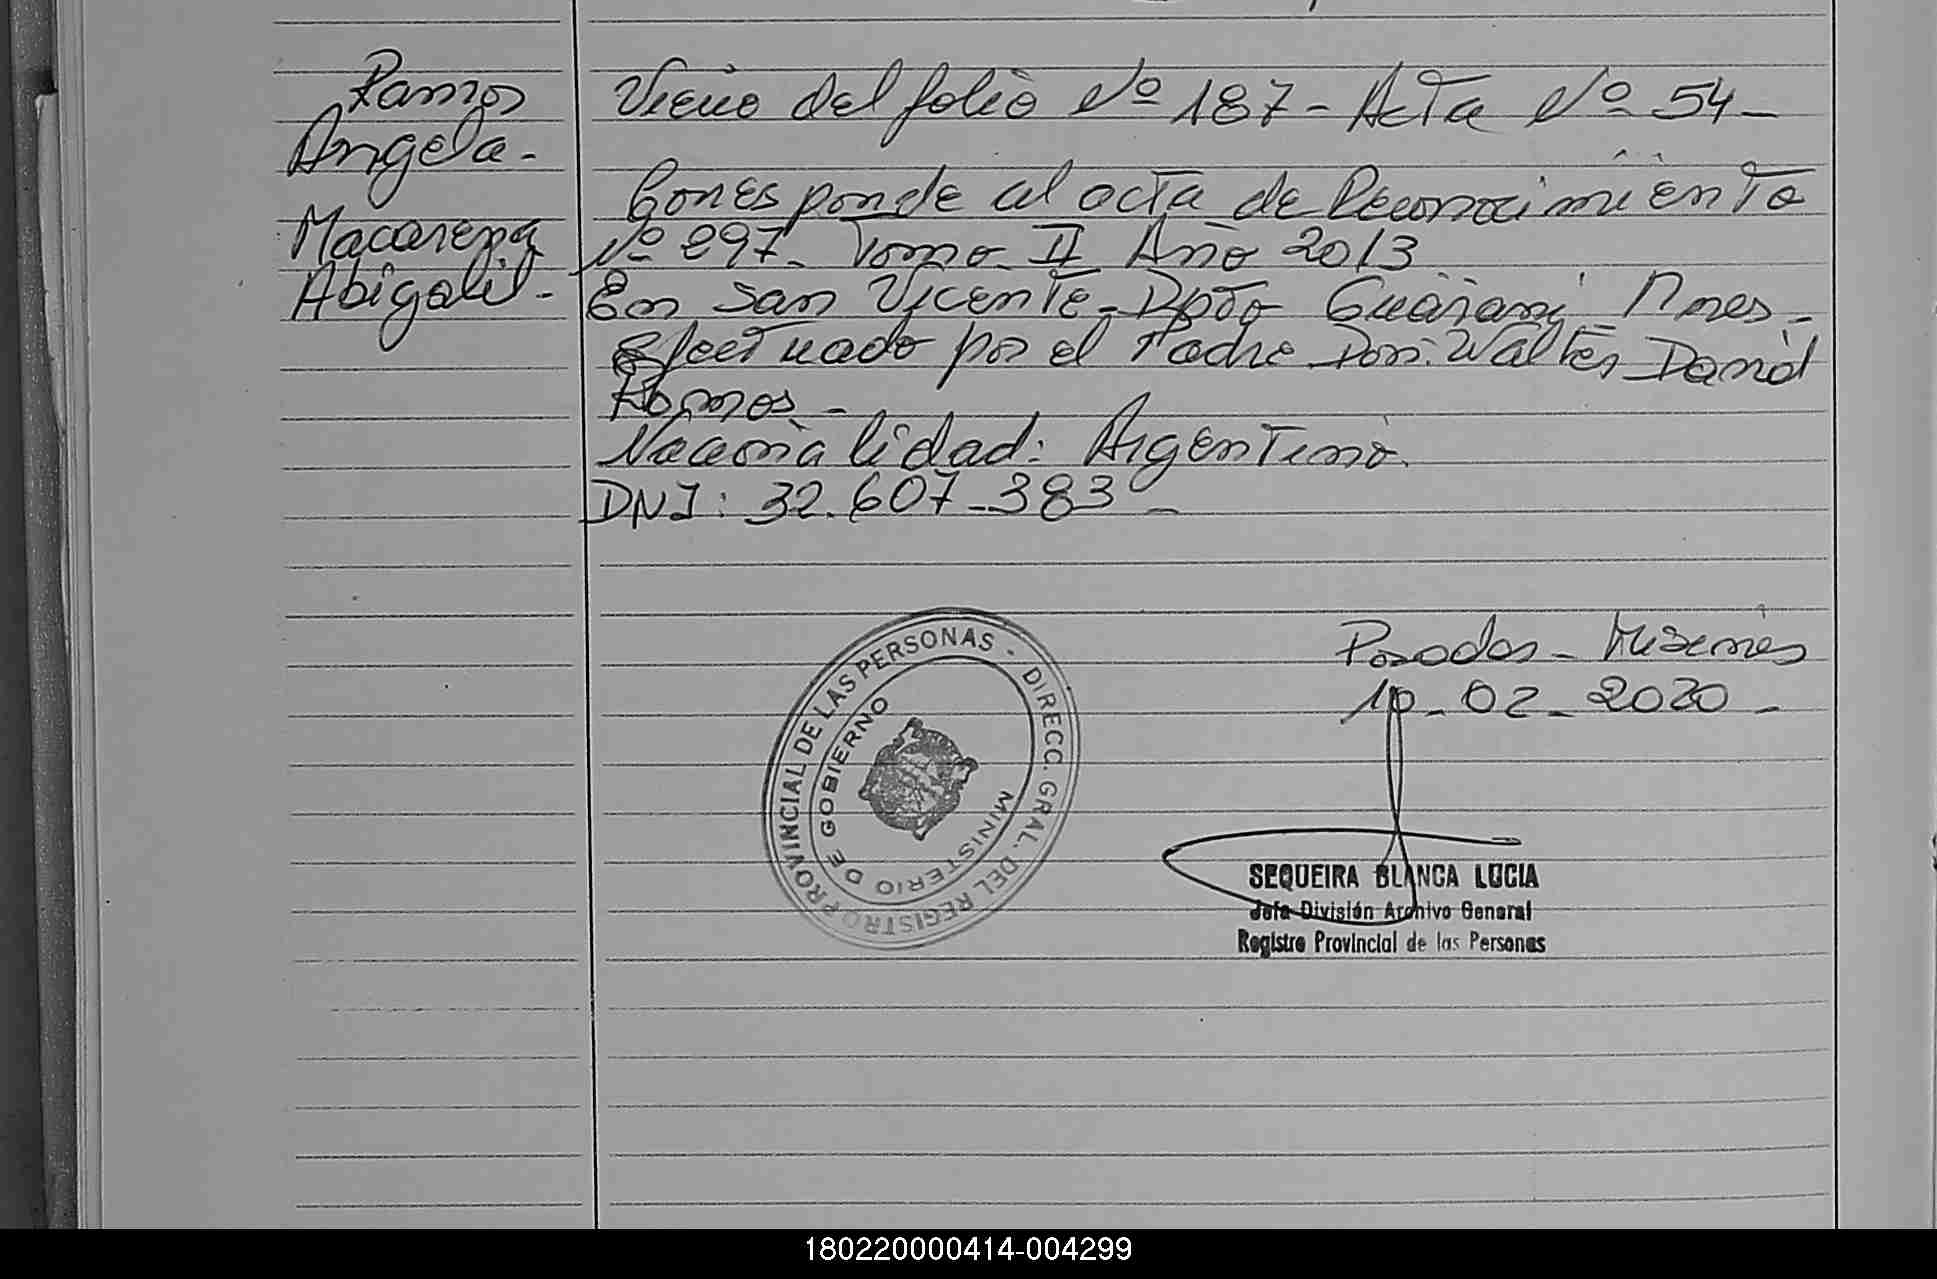 Ramos
Angela -
Macarena
Abigail -
Viene del folio Nº 187 - Acta Nº 54 -
Corresponde al acta de Reconocimiento
Nº 297 - Tomo II Año 2013
En San Vicente - Dpto Guarani Mnes -
Efectuado por el Padre Don: Walter Daniel
Ramos -
Nacionalidad: Argentino.
DNI: 32.607-383 -
Posadas - Misiones
10-02-2020 -
DIRECC. GRAL. DEL REGISTRO PROVINCIAL DE LAS PERSONAS -
MINISTERIO DE GOBIERNO
SEQUEIRA BLANCA LUCIA
Jefa División Archivo General
Registro Provincial de las Personas
180220000414-004299